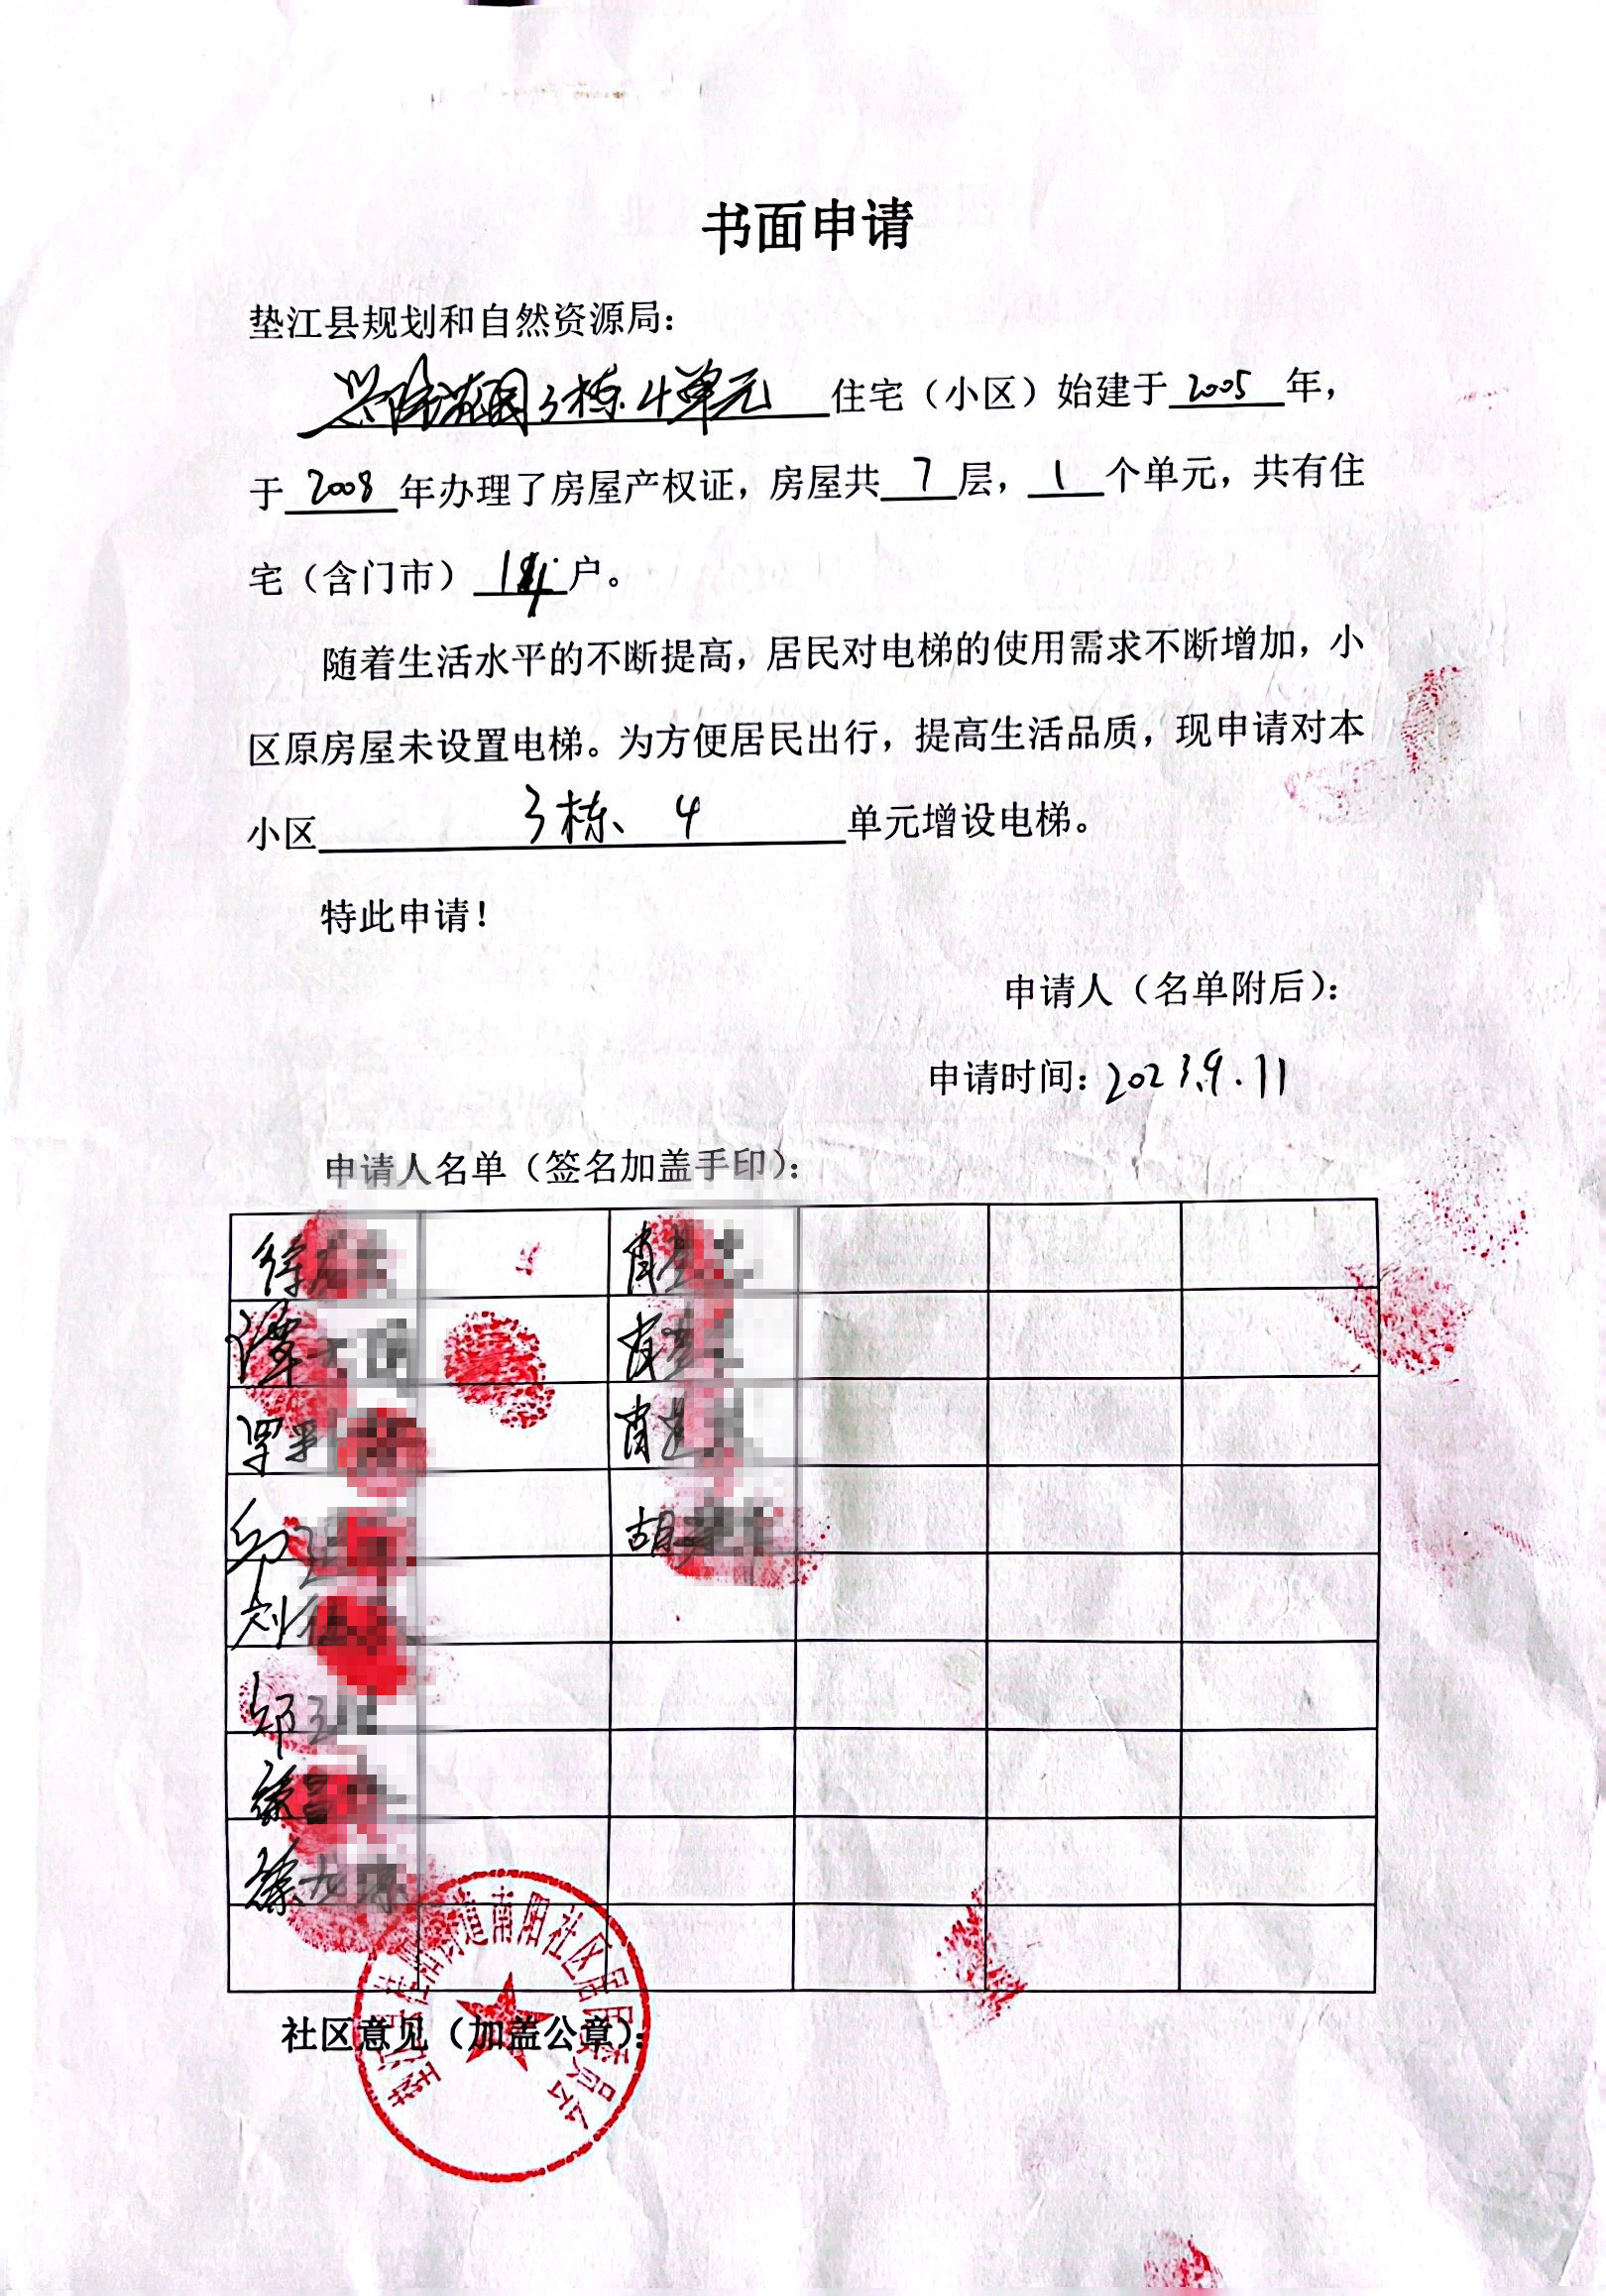 书面申请
垫江县规划和自然资源局：
兴阳花园3栋4单元住宅（小区）始建于2005年，
于2008年办理了房屋产权证，房屋共7层，1个单元，共有住
宅（含门市）14户。
随着生活水平的不断提高，居民对电梯的使用需求不断增加，小
区原房屋未设置电梯。为方便居民出行，提高生活品质，现申请对本
小区3栋、4单元增设电梯。
特此申请！
申请人（名单附后）：
申请时间：2023.9.11
申请人名单（签名加盖手印）：
徐 肖
谭 肖
罗 肖
邱 胡
刘
邱
徐
徐
社区意见（加盖公章）：
垫江县桂阳街道南阳社区居民委员会